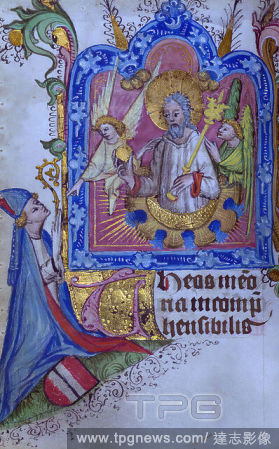 Theos meō
na incomp
hensibilis
TPG
www.tpgnews.com/ 達志影像